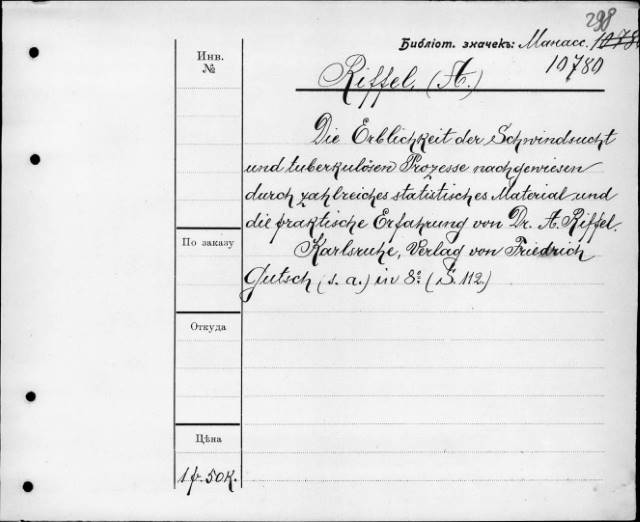 298
Библіот. значекъ: Манасс. 1078
10780
Инв.
№
Riffel, (A.)
Die Erblichkeit der Schwindsucht
und tuberkulösen Prozesse nachgewiesen
durch zahlreiches statistisches Material und
die praktische Erfahrung von Dr. A. Riffel.
Karlsruhe, Verlag von Friedrich
Gutsch (s. a.) in 8º (S. 112.)
По заказу
Откуда
Цѣна
1 р. 50 к.